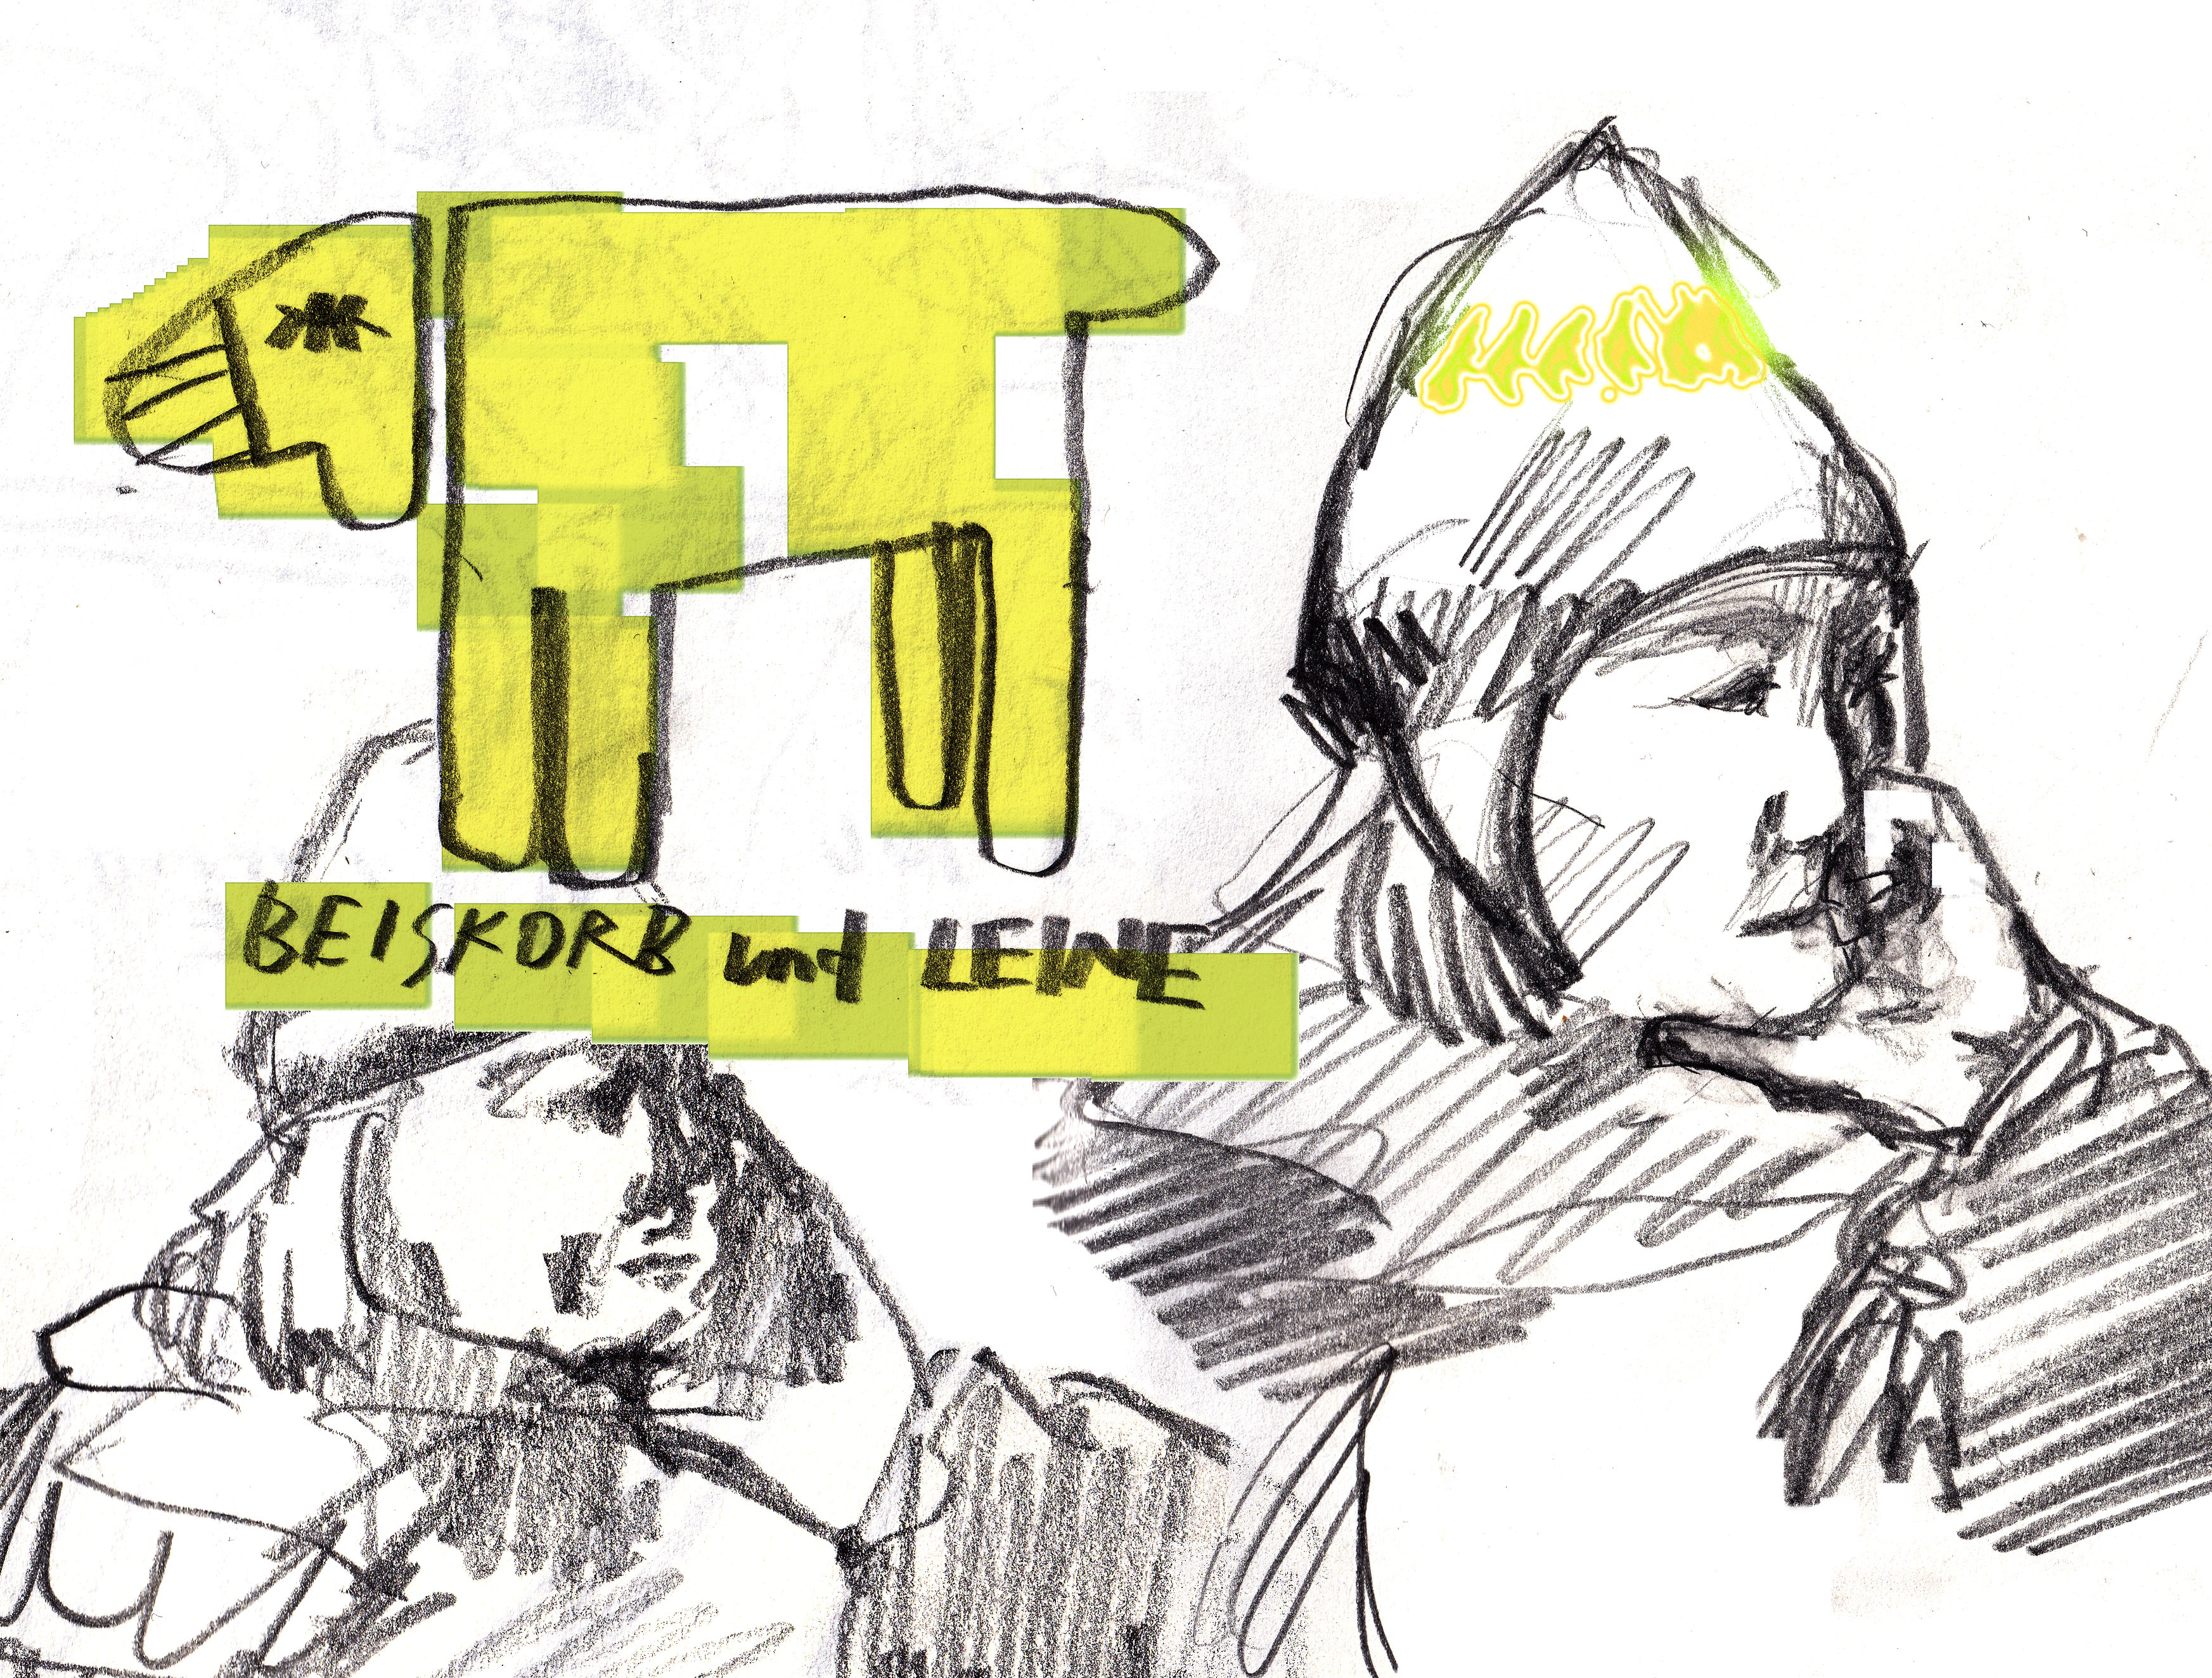 BEISKORB und LEINE